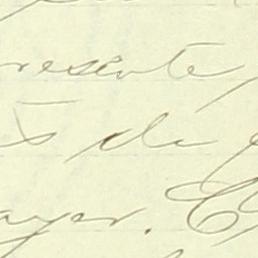 resente
s de
ayer. C